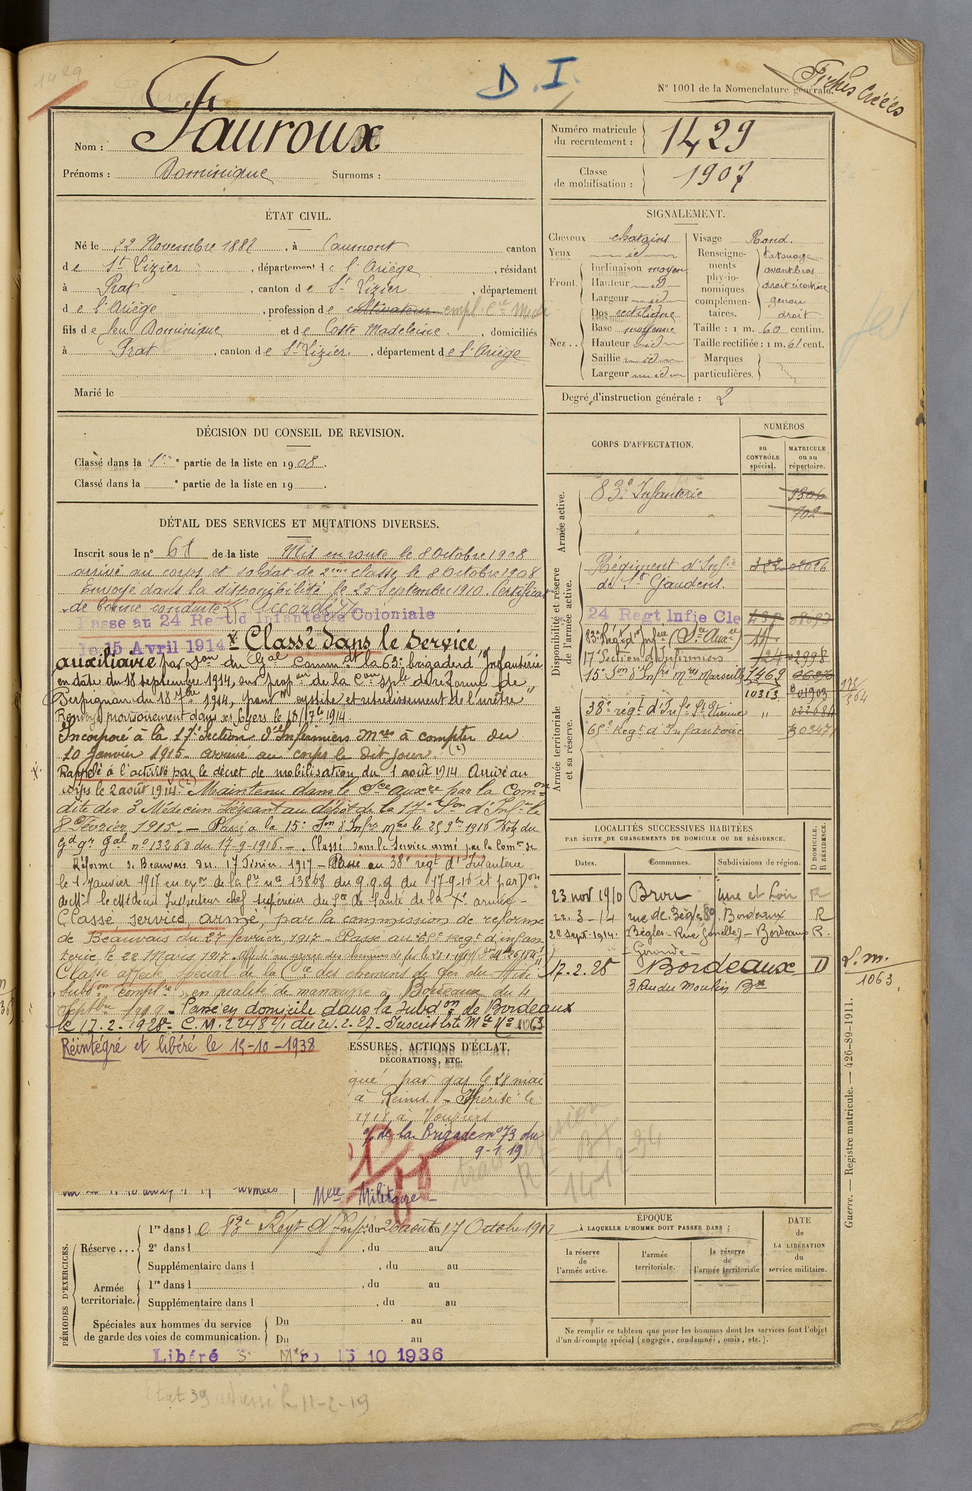 1429
D. I.
N° 1001 de la Nomenclature générale.
Fiches Créées
Nom : Fauroux
Prénoms : Dominique Surnoms :
Numéro matricule du recrutement : 1429
Classe de mobilisation : 1907
ÉTAT CIVIL.
Né le 22 Novembre 1882, à Caumont canton
de St Lizier, département de l'Ariège, résidant
à Prat, canton de St Lizier, département
de l'Ariège, profession de cultivateur empl.
fils de feu Dominique et de Coste Madeleine, domiciliés
à Prat, canton de St Lizier, département de l'Ariège
Marié le
SIGNALEMENT.
Cheveux chatains
Yeux id
Front. Inclinaison moyen
Hauteur id
Largeur id
Nez.. Dos rectiligne
Base moyenne
Hauteur id
Saillie id
Largeur id
Visage Rond.
Renseignements physionomiques complémentaires. tatouage avant bras droit genou droit
Taille : 1 m. 60 centim.
Taille rectifiée : 1 m. 61 cent.
Marques particulières.
Degré d'instruction générale : 2
DÉCISION DU CONSEIL DE REVISION.
Classé dans la 1re partie de la liste en 1908.
Classé dans la e partie de la liste en 19 .
DÉTAIL DES SERVICES ET MUTATIONS DIVERSES.
Inscrit sous le n° 61 de la liste Mis en route le 8 Octobre 1908
arrivé au corps et soldat de 2eme classe le 8 Octobre 1908
Envoyé dans la disponibilité le 25 Septembre 1910. Certificat
de bonne conduite Accordé
Passe au 24 Regt d'Infanterie Coloniale
le 15 Avril 1914 Classé dans le service
auxiliaire par Don du Gal Commdt la 63e brigade d'Infanterie
en date du 18 septembre 1914, sur propon de la Con sple de réforme de
Perpignan du 18 7bre 1914, pour cystite et rétrécissement de l'urètre
Renvoyé provisoirement dans ses foyers le 15/7bre 1914.
Incorporé à la 17e Section d'Infirmiers Mres à compter du
20 Janvier 1915 arrivé au corps le dit jour. (2)
Rappelé à l'activité par le décret de mobilisation du 1 août 1914 Arrivé au
corps le 2 août 1914. Maintenu dans le Sce auxre par la Comon
dite des 3 Médecins siégeant au dépôt de la 17e Son d'Infres le
8 Février 1915. – Passé à la 15e Son d'Infres Mres le 25 9bre 1916 Note du
gd qr gal n° 13268 du 17-9-1916. – Classé dans le Service armé par la Comon de
Réforme de Beauvais du 17 Février 1917 – Passé au 38e régt d'Infanterie
le 1 Janvier 1917 en exon de la Cre n° 13868 du G.Q.G. du 17-9-16 et par Don
de Mr le Médecin Inspecteur chef supérieur du Sce de Santé de la Xe armée –
Classé service armé, par la commission de réforme
de Beauvais du 27 février 1917 – Passé au 65e Regt d'infanterie
le 22 Mars 1917.
Classé affecté spécial de la Cie des chemins de fer du Midi
Subdon complre, en qualité de manœuvre à Bordeaux du 4
septbre 1909 – Passé en domicile dans la Subdon de Bordeaux
le 17-2-1928 – C.M. 22484/1 du 21-2-27 Inscrit liste Mle N° 1063
Réintégré et libéré le 15-10-1938
ESSURES, ACTIONS D'ÉCLAT,
DÉCORATIONS, ETC.
qué par gaz le 28 mai
à Reims – Ypérité le
1918 à Vouziers
de la Brigade n° 73 du
9-1-19
Mlle Militaire –
CORPS D'AFFECTATION.
NUMÉROS
au CONTRÔLE spécial.
MATRICULE ou au répertoire.
Armée active.
83e Infanterie 9306
702
Disponibilité et réserve de l'armée active.
Régiment d'Infie de St Gaudens
24 Regt Infie Cle
83e Régt d'Infrie (Sce Auxre)
17e Section d'Infirmiers 124 02998
15e Son d'Infres Mres Marseille 7469
10363 01903
Armée territoriale et sa réserve.
38e régt d'Infie St Etienne "
65e Regt d'Infanterie
LOCALITÉS SUCCESSIVES HABITÉES
PAR SUITE DE CHANGEMENTS DE DOMICILE OU DE RÉSIDENCE.
Dates. Communes. Subdivisions de région. D DOMICILE. R RÉSIDENCE.
23 nov 1910 Brou Eure et Loir R
22-3-14 rue de Bègles 89 Bordeaux R
22 Sept. 1914. Bègles – Bordeaux R.
– Gironde –
17-2-28 Bordeaux D
3 Rue du Moulin Bx
L. m.
1063.
Guerre. — Registre matricule. — 426-89-1911.
PÉRIODES D'EXERCICES.
Réserve ... 1re dans le 83e Regt d'Infie du 26 août au 17 Octobre 1912
2e dans l , du au
Supplémentaire dans l , du au
Armée territoriale. 1re dans l , du au
Supplémentaire dans l , du au
Spéciales aux hommes du service de garde des voies de communication. Du au
Du au
Libéré Sce Mre 15 10 1936
ÉPOQUE
À LAQUELLE L'HOMME DOIT PASSER DANS :
la réserve de l'armée active.
l'armée territoriale.
la réserve de l'armée territoriale
DATE de LA LIBÉRATION du service militaire.
Ne remplir ce tableau que pour les hommes dont les services font l'objet
d'un décompte spécial (engagés, condamnés, omis, etc.).
Etat 39 adressé le 11-2-19